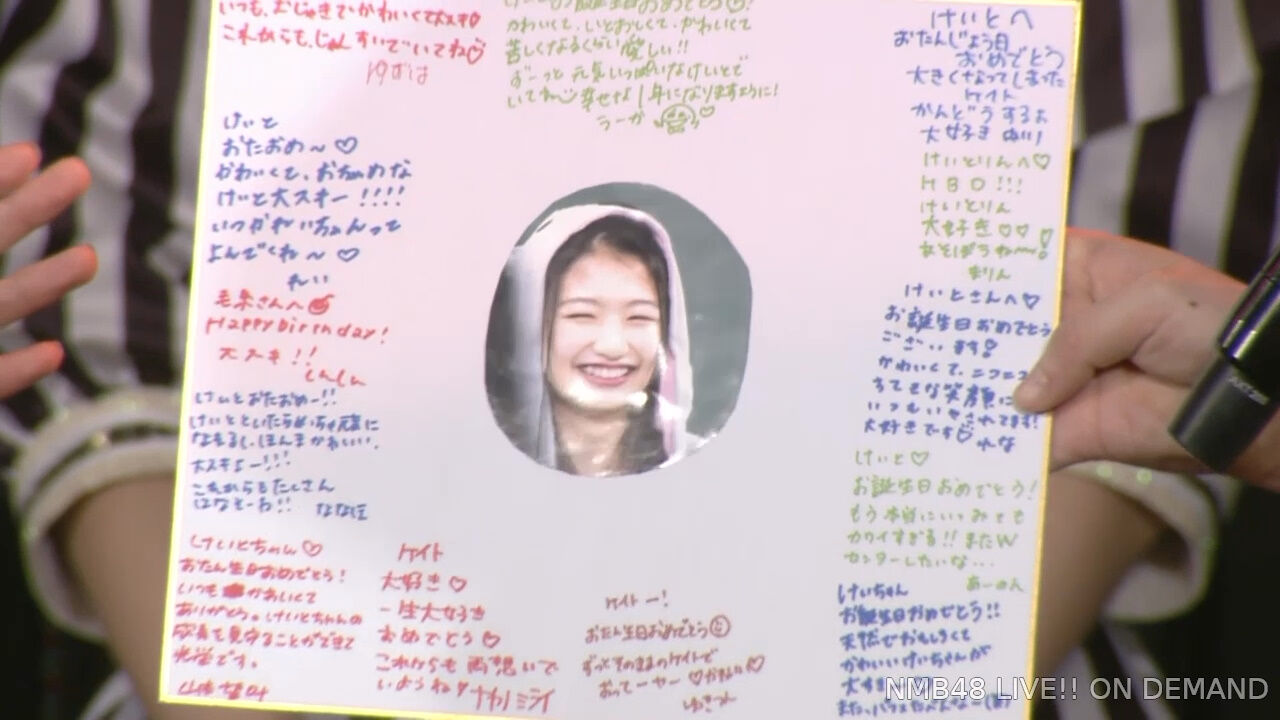 いつも、むじゃきでかわいくて大スキ♡
これからも、じゅんすいでいてね♡
かわいくて、いとおしくて、かわいくて
苦しくなるくらい愛しい!!
ずーっと元気いっぱいなけいとで
いてね 幸せな1年になりますように!
うーか
けいとへ
おたんじょう日
おめでとう
大きくなってしまった
ケイト
かんどうするよ
大好き
けいと
おたおめ〜♡
かわいくて、おちゃめな
けいと大スキー!!!!
いつかれいちゃんって
よんでくわ〜♡
れい
けいとりんへ♡
HBD!!!
けいとりん
大好き♡♡
あそぼうね〜!
まりん
毛糸さんへ
Happy birthday!
大スキ!!
しんしん
けいとさんへ♡
お誕生日おめでとう
ございます!
かわいくて、ニコニコ
すてきな笑顔に
いつもいやされてます!
大好きです♡ れな
けいとおたおめー!!
けいとといたらめっちゃ元気に
なれるし、ほんまかわいい。
大スキよー!!!
これからもたくさん
はなそーね!! ななほ
けいと♡
お誕生日おめでとう!
もう本当にいつみても
カワイすぎる!!またW
センターしたいな...
あーのん
けいとちゃん♡
おたん生日おめでとう!
いつもかわいくて
ありがとう。けいとちゃんの
成長を見守ることができて
光栄です。
ケイト
大好き♡
一生大好き
おめでとう♡
これからも両想いで
いようね!
ケイトー!
おたん生日おめでとう
ずっとそのままのケイトで
おってーやー ♡かわいい♡
ゆきつん
けいちゃん
お誕生日おめでとう!!
天然でおもしろくて
かわいいけいちゃんが
NMB48 LIVE!! ON DEMAND